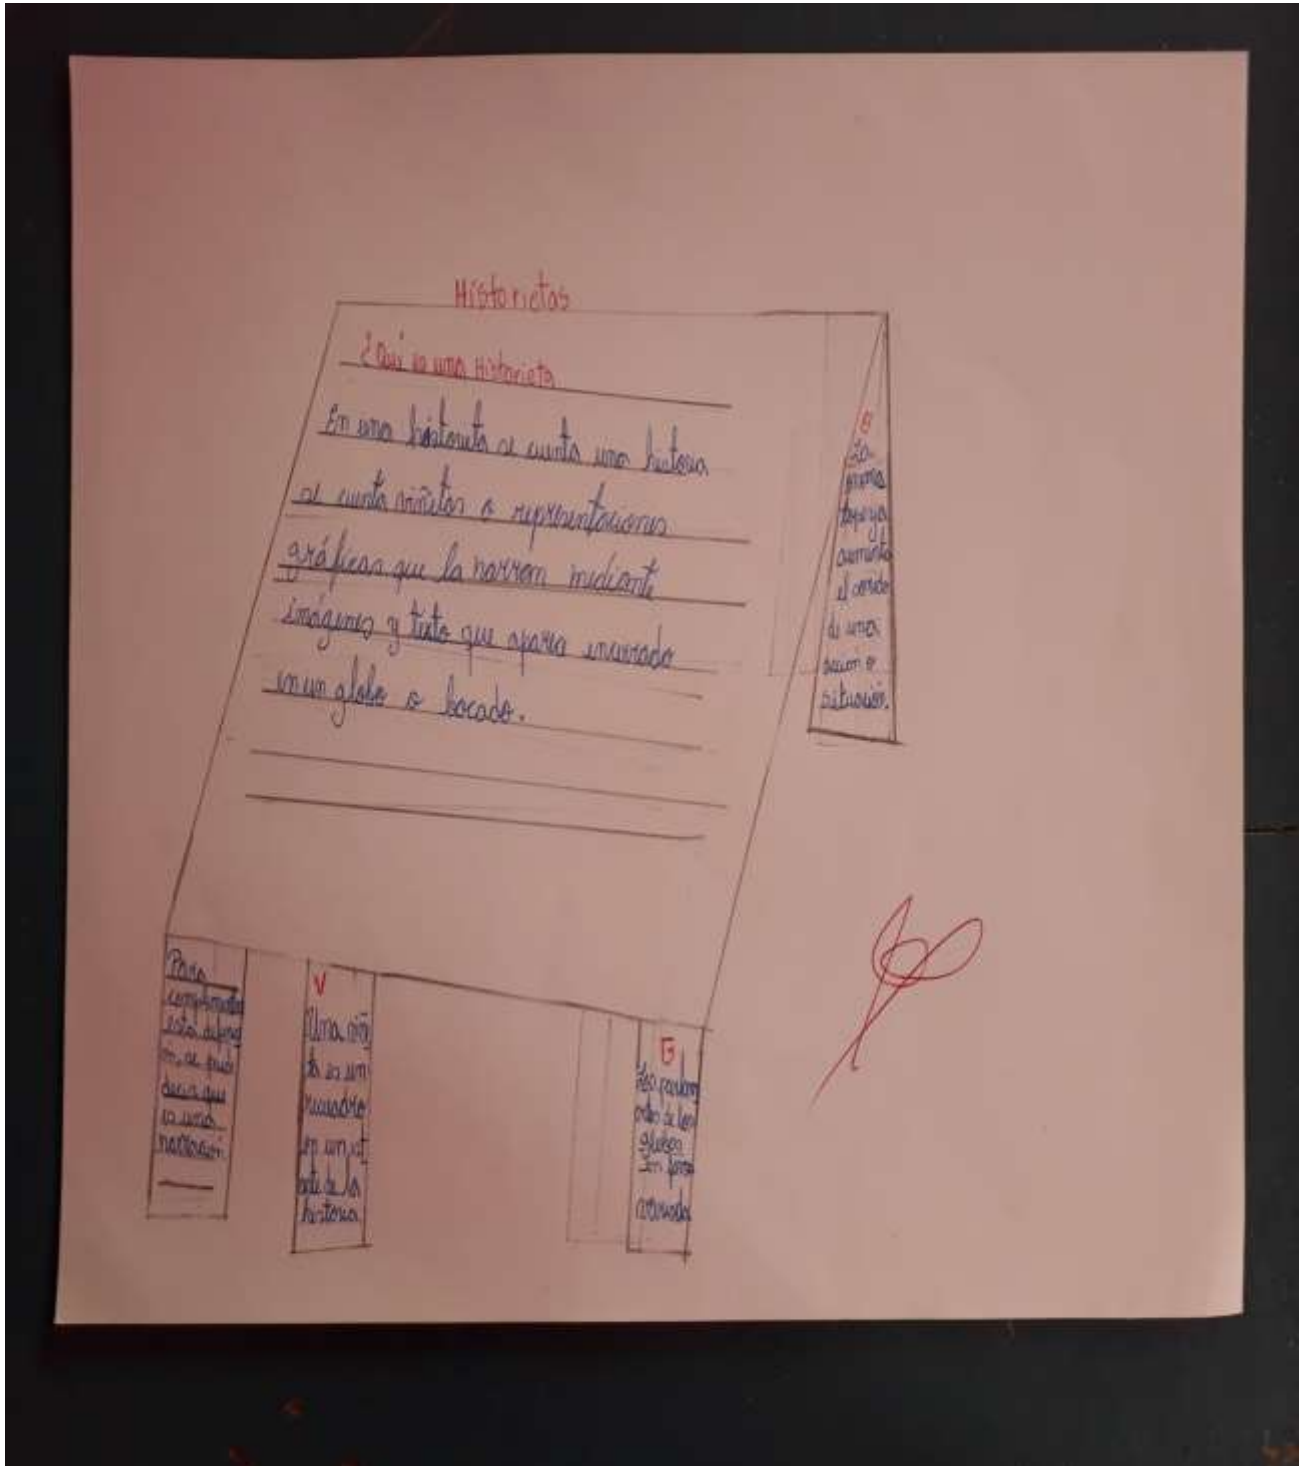 Historietas
¿Qué es una Historieta
En una historieta se cuenta una historia
se cuenta viñetas o representaciones
gráficas que la narran mediante
imágenes y texto que aparece encerrado
en un globo o bocado.
O
La
onoma
topeya
aumenta
el sonido
de una
acción o
situación.
Para
complementar
esta
se puede
decir que
es una
narración
V
Una viñ
ta es un
recuadro
en un
de la
historia
G
de los
globos
son
variada